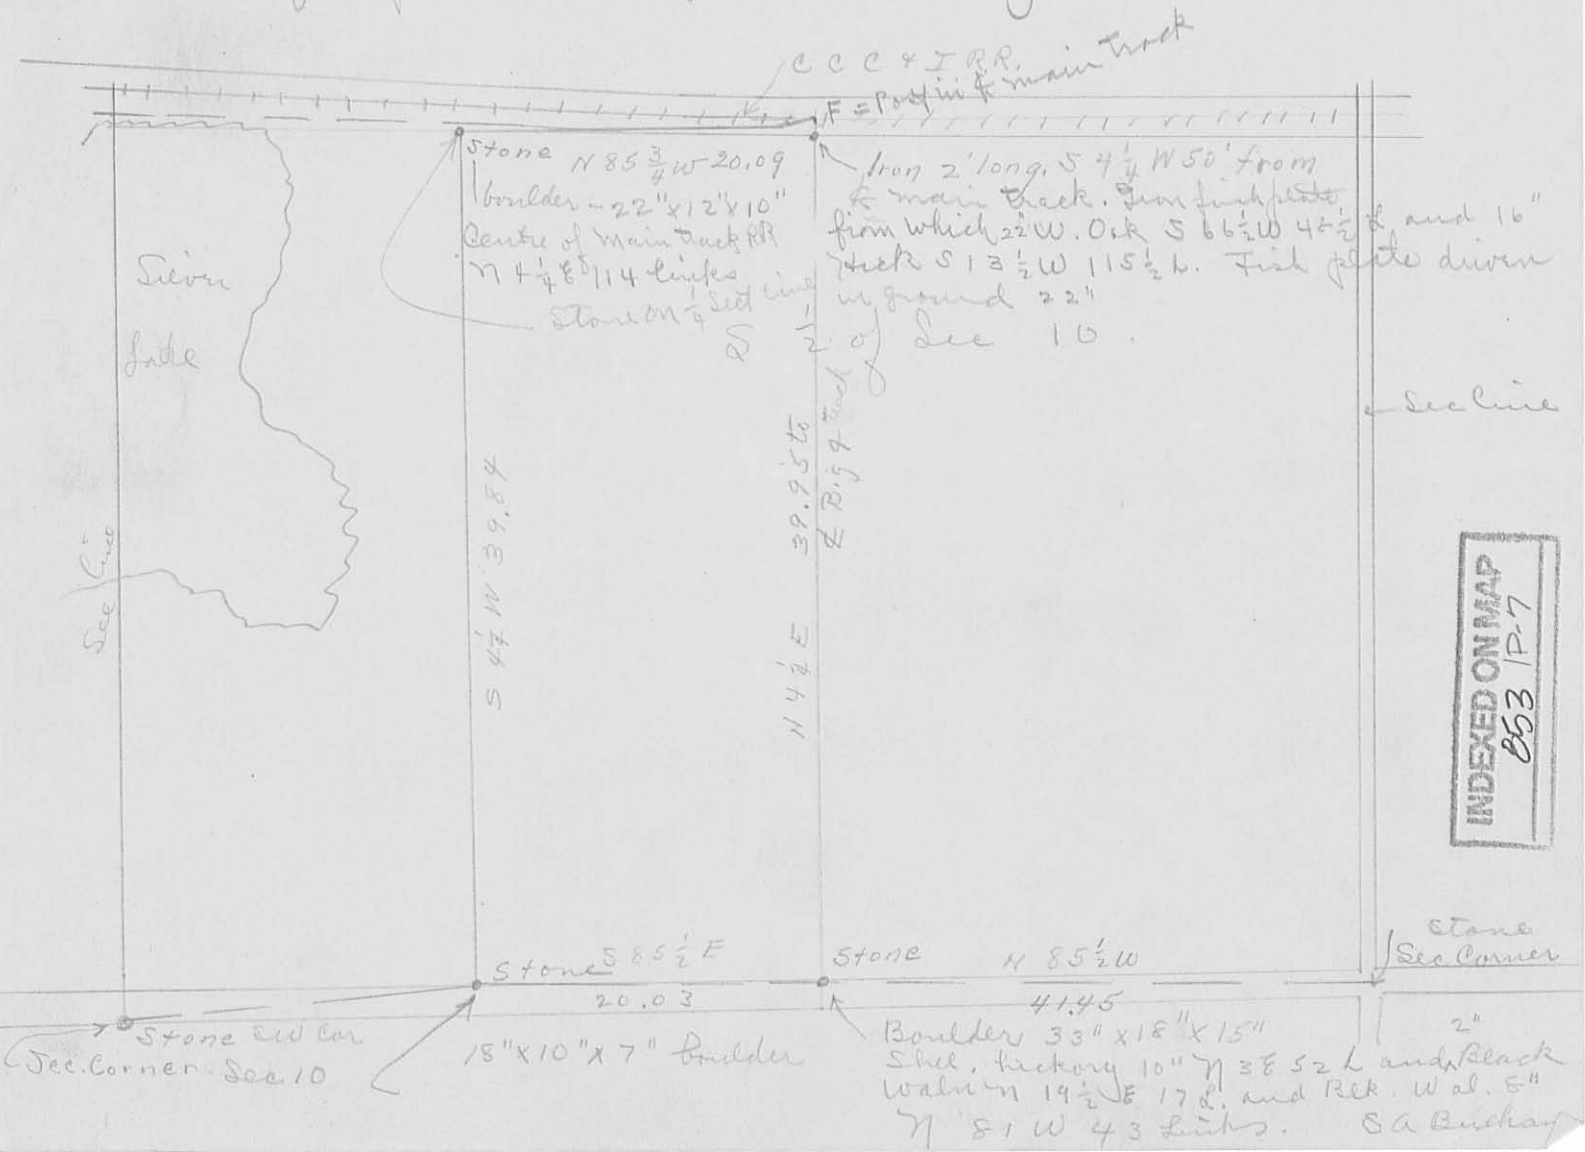 C C C & I RR.
F = Post in ℄ main track
Stone N 85 3/4 W 20.09
boulder - 22" x 12" x 10"
Centre of Main track RR
N 4 1/4 E 114 links
Stone on 1/4 Sect line
Iron 2' long. S 4 1/4 W 50' from
℄ main track. Iron fish plate
from which 22" W. Oak S 66 1/2 W 45 1/2 L and 16"
Hick S 13 1/2 W 115 1/2 L. Fish plate driven
in ground 22"
S 1/2 of Sec 10.
Silver
Lake
Sec Line
S 4 1/4 W 39.84
N 4 1/4 E 39.95 to
℄ Big 4 Track
Sec Line
INDEXED ON MAP
853 P-7
Stone
Sec Corner
Stone S 85 1/2 E
20.03
Stone
N 85 1/2 W
41.45
Stone SW Cor.
Sec. Corner. Sec 10
18" x 10" x 7" boulder
Boulder 33" x 18" x 15"
Shel. hickory 10" N 3 E 52 L and 2" Black
Waln N 19 1/2 E 17 L. and Blk. Wal. 8"
N 81 W 43 Links.
S A Buchay